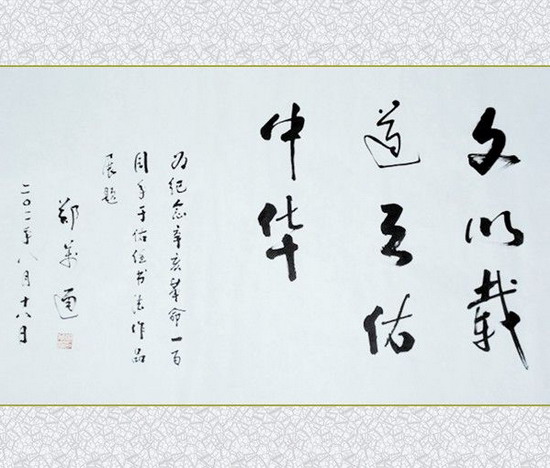 文以载
道天佑
中华
为纪念辛亥革命一百
周年于佑任书法作品
展题
郑萬通
二〇一一年八月十八日